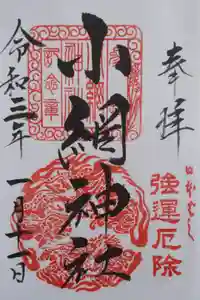 奉拝
日本ばし
強運厄除
小網神社
令和三年
一月十一日